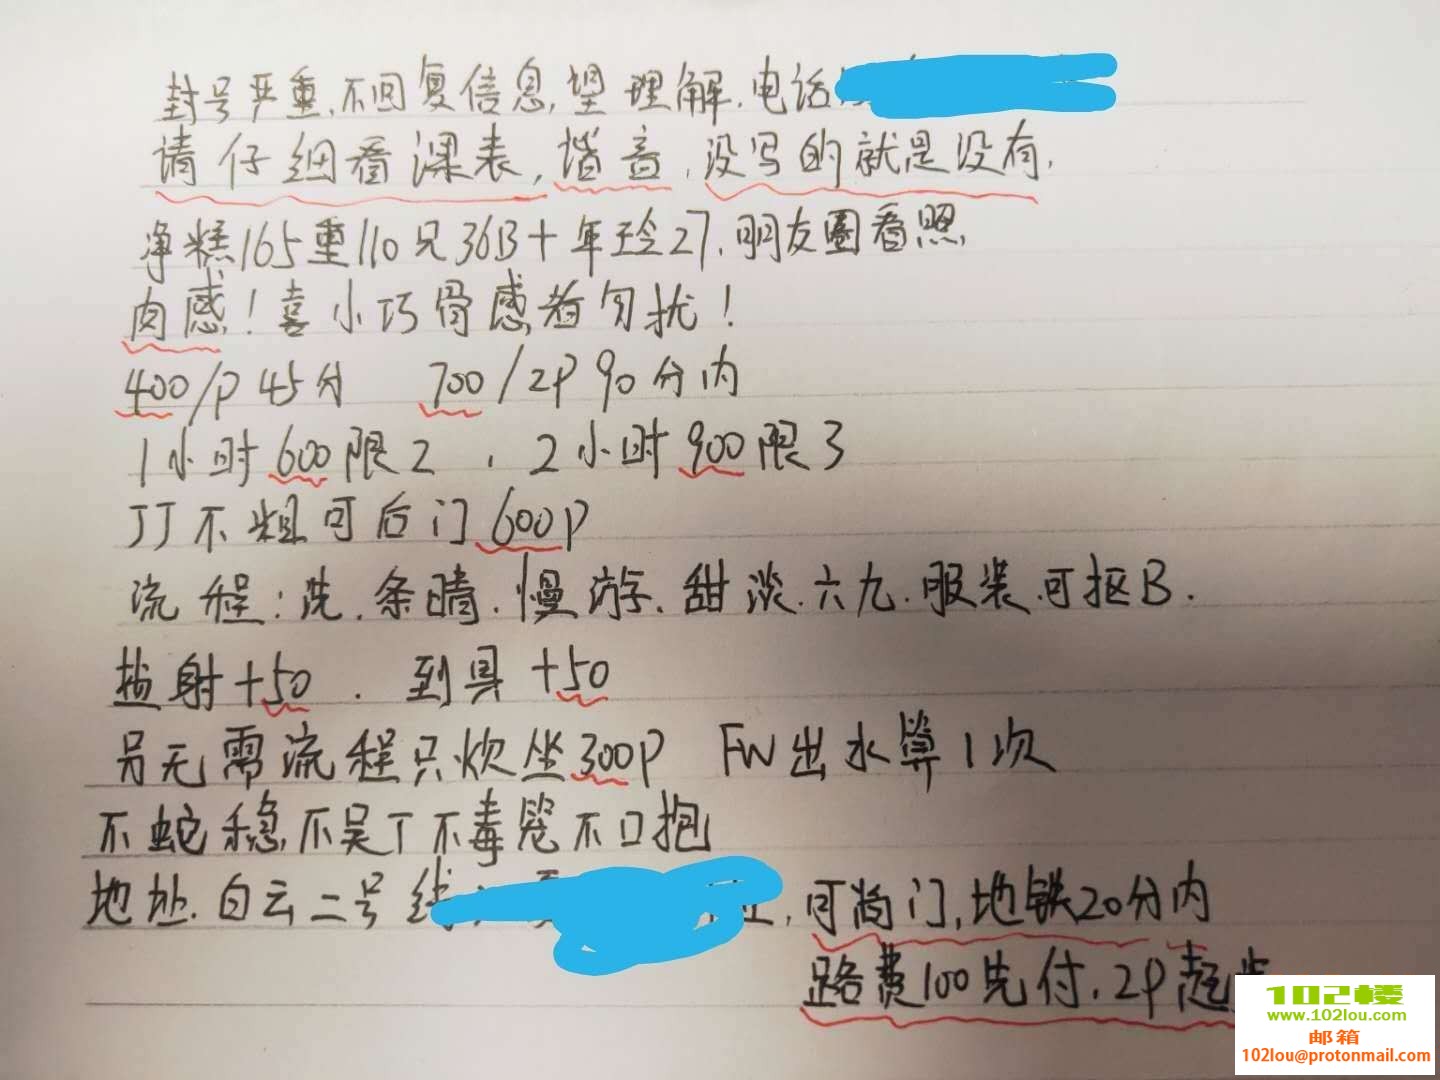 封号严重,不回复信息,望理解.电话
请仔细看课表,谐音,没写的就是没有,
净糕165重110兄36B+年玲27,朋友圈看照
肉感!喜小巧骨感者勿扰!
400/P 45分 700/2P 90分内
1小时600限2 , 2小时900限3
JJ不粗可后门600P
流程:洗.条晴.慢游.甜淡.六九.服装.可抠B.
盐射+50 . 到具+50
另无需流程只炊坐300P FW出水算1次
不蛇稳,不吴T不毒宠不口抱
地址.白云二号线 ,可尚门,地铁20分内
路费100先付.2P起
102楼
www.102lou.com
邮箱
102lou@protonmail.com